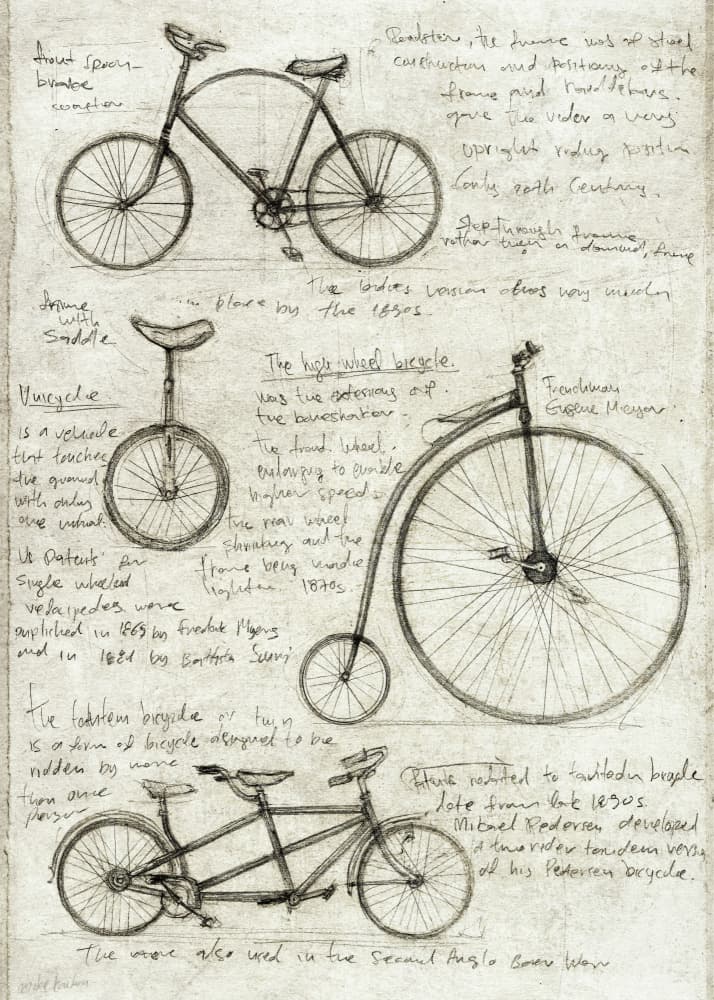 front spoon
brake
Roadster, the frame was of steel
construction and positiony of the
frame and handlebars.
gave the rider a very
upright riding position
Early 20th Century.
Step through frame
rather than a diamond, frame
The ladies version was very much
in place by the 1890s.
frame
with
Saddle
Unicycle
is a vehicle
that touches
the ground
with only
one wheel.
Us Patents for
single wheeled
velocipedes were
puplished in 1869 by Fredrik Myers
and in 1881 by Battista Scuri
The high wheel bicycle.
was the extensions of.
the boneshaker.
the front wheel.
enlarging to enable
higher speeds.
the rear wheel
shrinking and the
frame being made
lighter. 1870s.
Frenchman
Eugene Meyer
The tantem bicycle or twin
is a form of bicycle designed to be
ridden by more
than one
person
Patents related to tantedn bicycle
date from late 1890s.
Mikael Pedersen developed
a two rider tandem versy
of his Pedersen bicycle.
The were also used in the Second Anglo Boer War